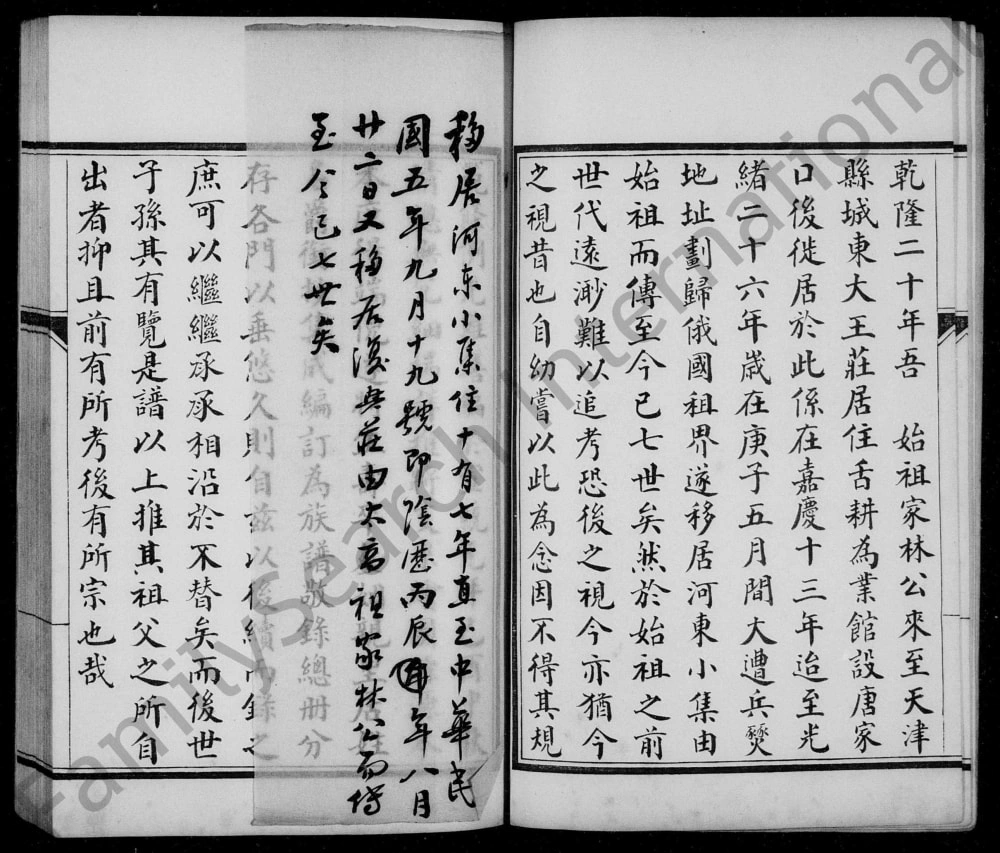 乾隆二十年吾　始祖家林公來至天津
縣城東大王莊居住舌耕為業館設唐家
口後徙居於此係在嘉慶十三年迨至光
緒二十六年歲在庚子五月間大遭兵燹
地址劃歸俄國租界遂移居河東小集由
始祖而傳至今已七世矣然於始祖之前
世代遠渺難以追考恐後之視今亦猶今
之視昔也自幼嘗以此為念因不得其規
移居河东小集住十有七年直至中華民
國五年九月十九號即陰歷丙辰年八月
廿二日又移居復興莊由太高祖家林公而傳
至今已七世矣
編訂為族譜敬錄總冊分
存各門以垂悠久則自茲以後續而錄之
庶可以繼繼承承相沿於不替矣而後世
子孫其有覽是譜以上推其祖父之所自
出者抑且前有所考後有所宗也哉
FamilySearch International